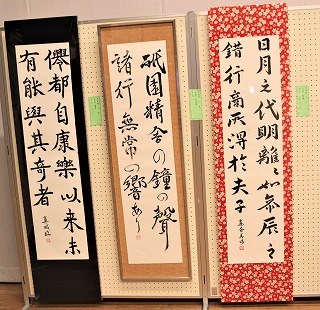 日月之代明離〻如参辰之
錯行商所得於夫子
祇園精舎の鐘の聲
諸行無常の響あり
僊都自康樂以来未
有能與其奇者